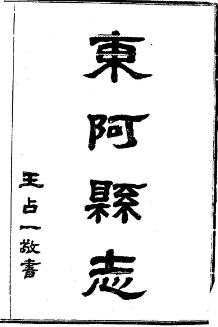 東阿縣志
王占一敬書